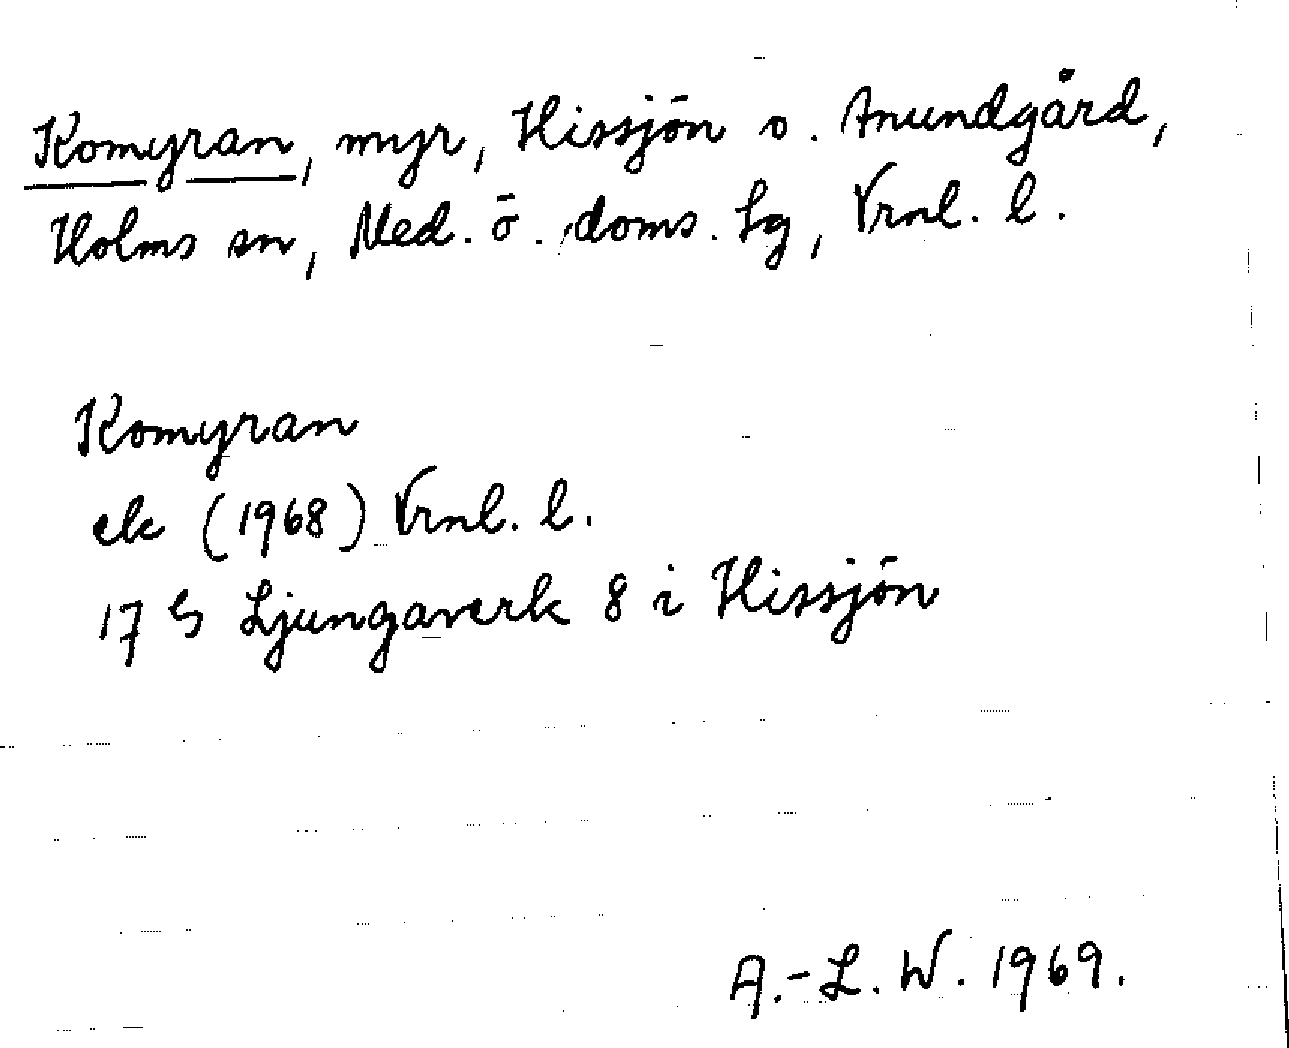 Komyran, myr, Hissjön o. Anundgård,
Holms sn, Med. ö. doms. lg, Vrnl. l.
Komyran
ek (1968) Vrnl. l.
17 G Ljungaverk 8 i Hissjön
A.-L. W. 1969.